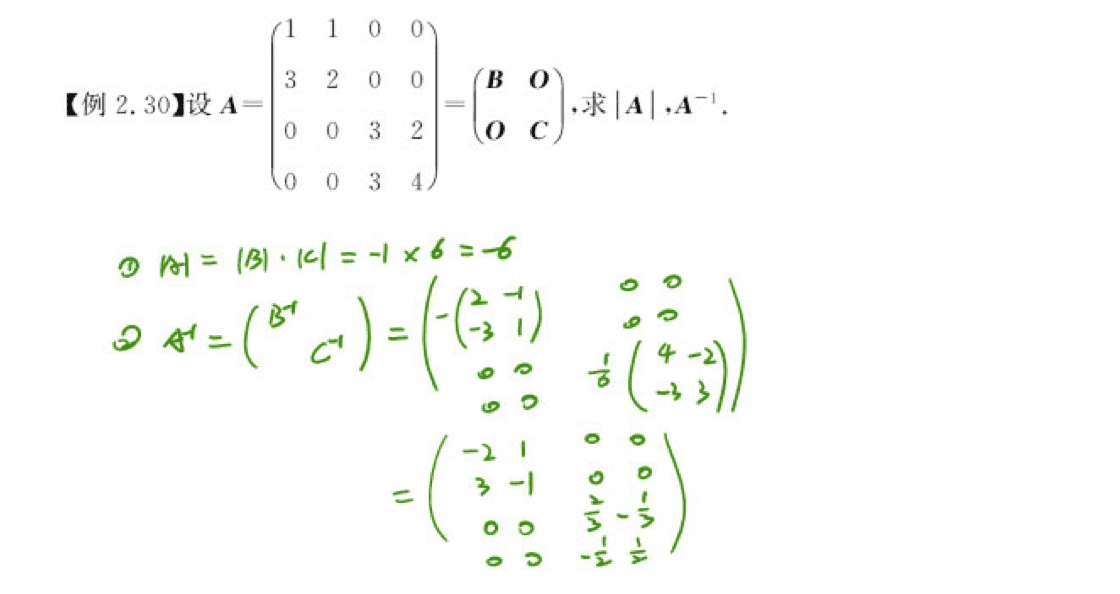 【例 2.30】设 A= ( 1 1 0 0 ; 3 2 0 0 ; 0 0 3 2 ; 0 0 3 4 ) = ( B O ; O C ) ,求 |A| ,A⁻¹.
① |A| = |B| · |C| = -1 × 6 = -6
② A⁻¹ = ( B⁻¹ ; C⁻¹ ) = ( -( 2 -1 ; -3 1 ) 0 0 ; 0 0 ; 0 0 ; 0 0 1/6 ( 4 -2 ; -3 3 ) )
= ( -2 1 0 0 ; 3 -1 0 0 ; 0 0 2/3 -1/3 ; 0 0 -1/2 1/2 )